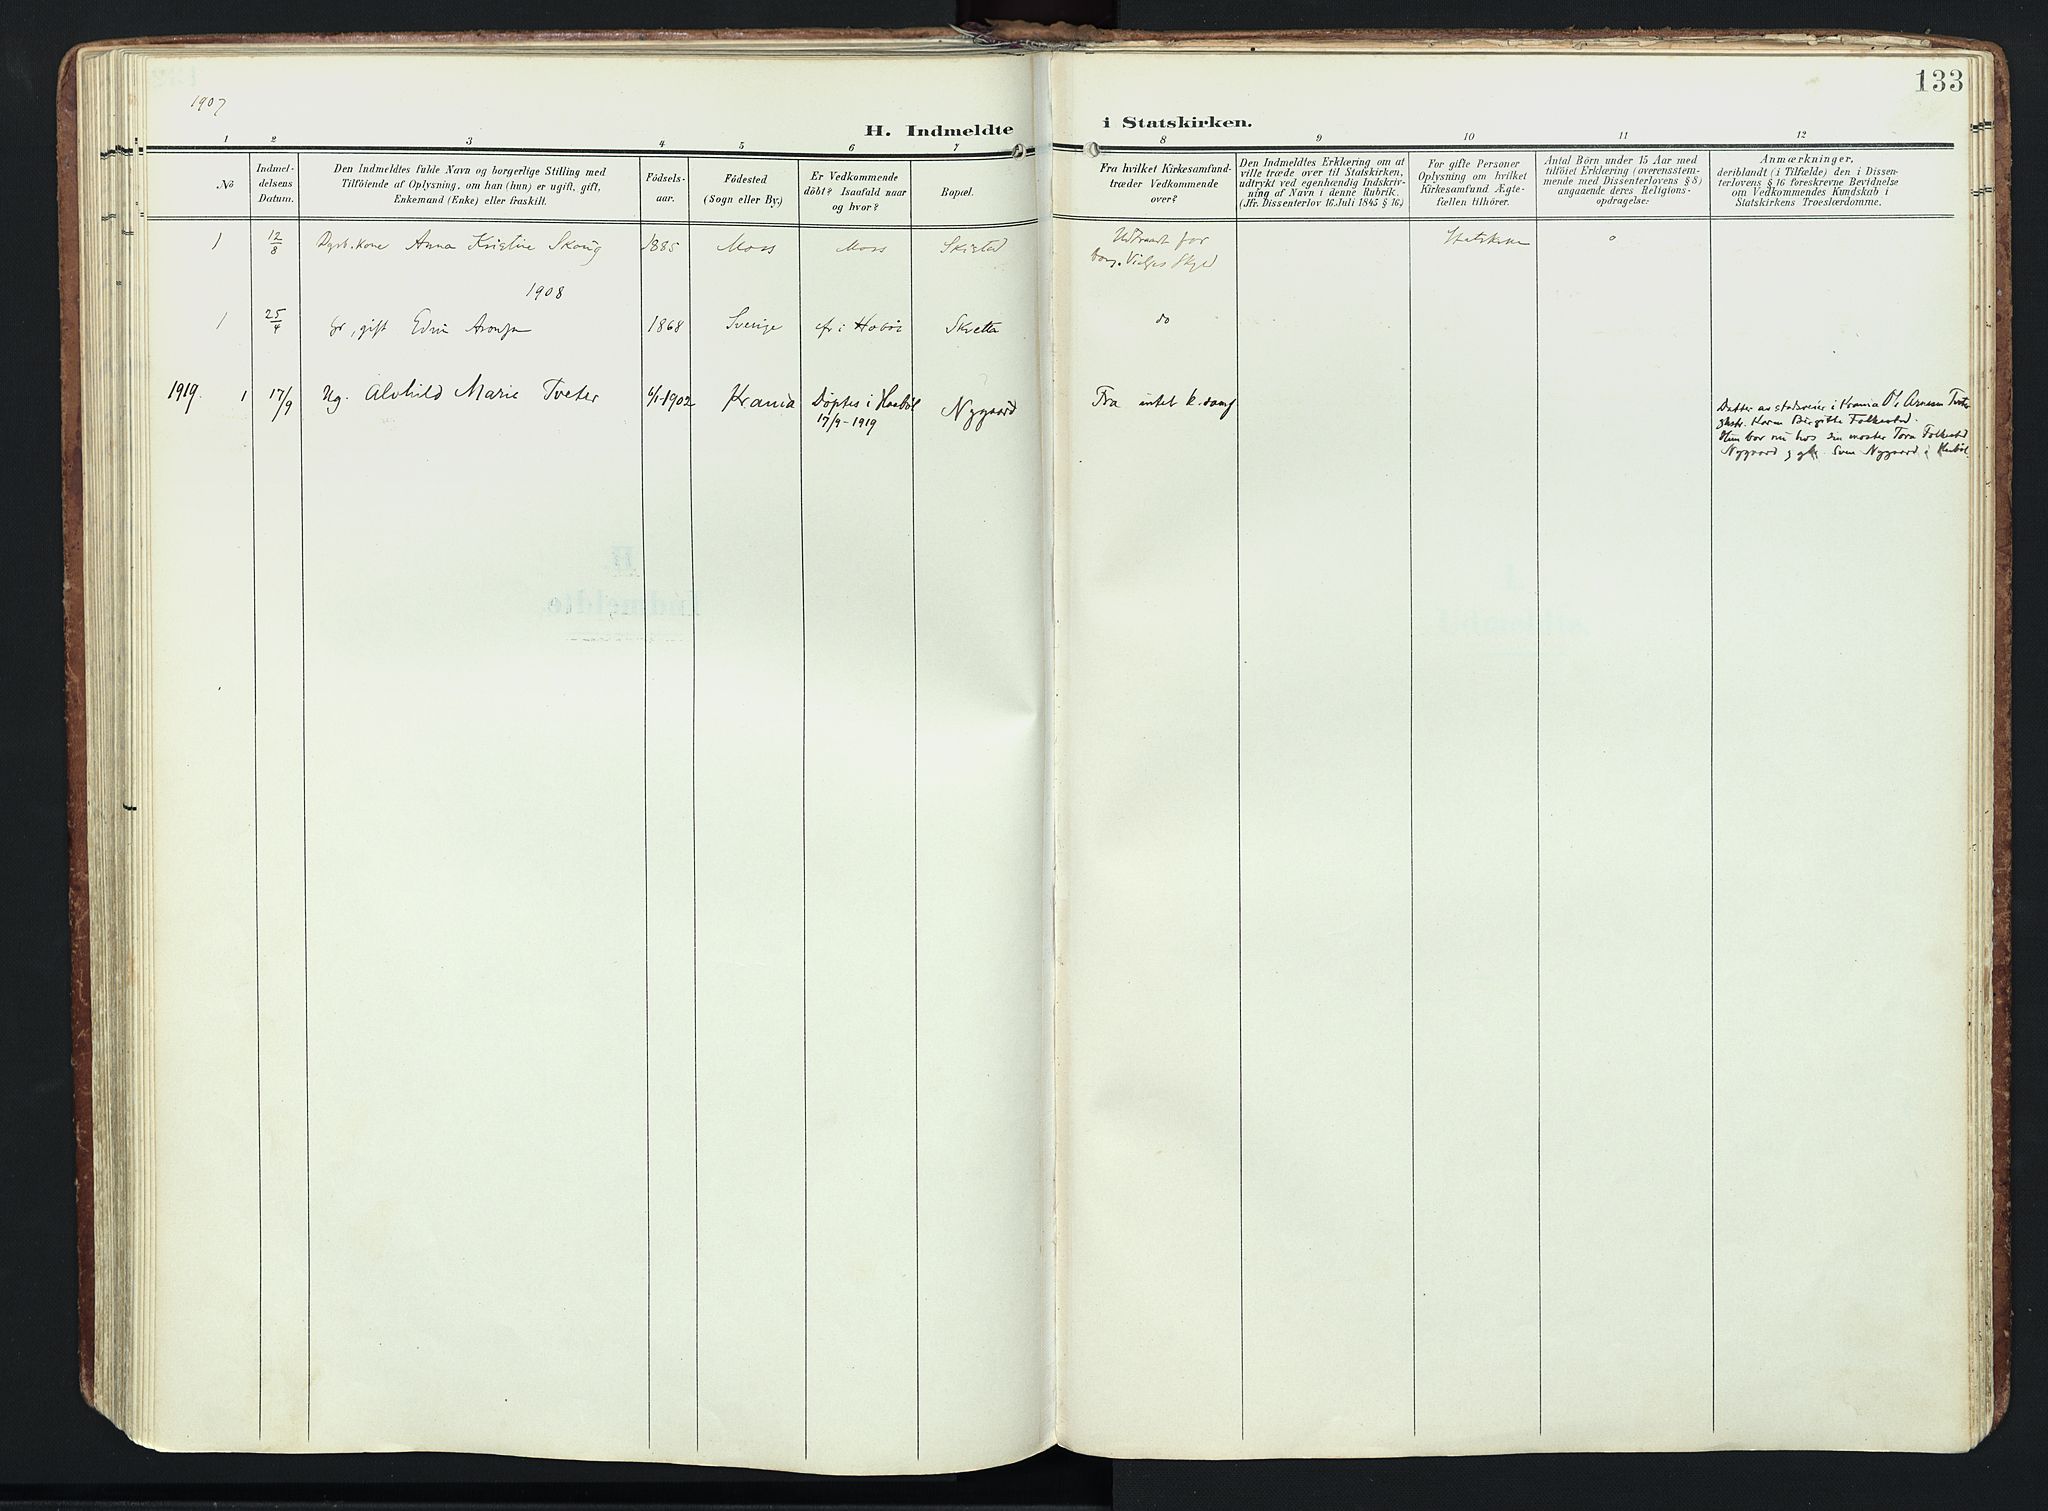 133
1907
H. Indmeldte i Statskirken.
1 2 3 4 5 6 7 8 9 10 11 12
Nö
Indmel-
delsens
Datum.
Den Indmeldtes fulde Navn og borgerlige Stilling med
Tilföiende af Oplysning, om han (hun) er ugift, gift,
Enkemand (Enke) eller fraskilt.
Födsels-
aar.
Födested
(Sogn eller By.)
Er Vedkommende
döbt? Isaafald naar
og hvor?
Bopæl.
Fra hvilket Kirkesamfund-
træder Vedkommende
over?
Den Indmeldtes Erklæring om at
ville træde over til Statskirken,
udtrykt ved egenhændig Indskriv-
ning af Navn i denne Rubrik.
(Jfr. Dissenterlov 16 Juli 1845 § 16.)
For gifte Personer
Oplysning om hvilket
Kirkesamfund Ægte-
fællen tilhörer.
Antal Börn under 15 Aar med
tilföiet Erklæring (overensstem-
mende med Dissenterlovens § 8)
angaaende deres Religions-
opdragelse:
Anmærkninger,
deriblandt (i Tilfælde) den i Dissen-
terlovens § 16 foreskrevne Bevidnelse
om Vedkommendes Kundskab i
Statskirkens Troeslærdomme.
1 12/8 kone Anna Kristine Skoug 1885 Moss Moss Skistad Udtraadt for Statskirken 0
borg. Vielses Skyld
1908
1 25/4 gift Edvin 1868 Sverige i Hobøl Skvetta do
1919. 1 17/9 Ug. Alvhild Marie Tveter 6/1-1902 Krania Døptes i Haabøl Nygaard Fra intet k. samf
17/9-1919
Datter av i Krania Arnesen Tveter
Karen Birgitte Folkestad.
Hun bor nu hos sin moster Tora Folkestad
Nygaard og Sven Nygaard i Haabøl.